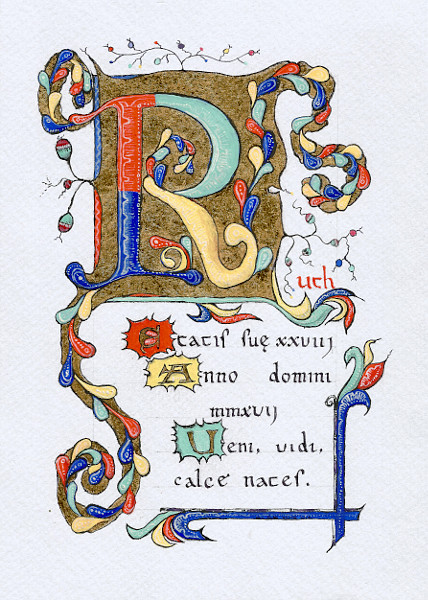 Ruth
Etatiſ ſuę xxviiij
Anno domini
mmxvij
Veni, vidi,
calce nateſ.